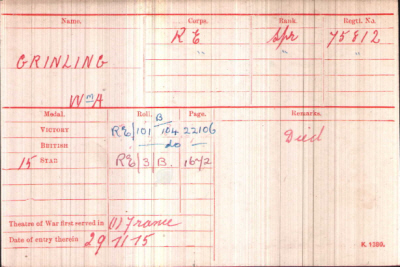 Name. Corps. Rank. Regtl. No.
GRINLING R E Spr 75812
Wm A " " "
Medal. Roll. Page. Remarks.
VICTORY RE/101 B 104 22106 Died
BRITISH — do —
15 STAR RE/3 B. 1672
Theatre of War first served in (1) France
Date of entry therein 29 7/15
K 1380.